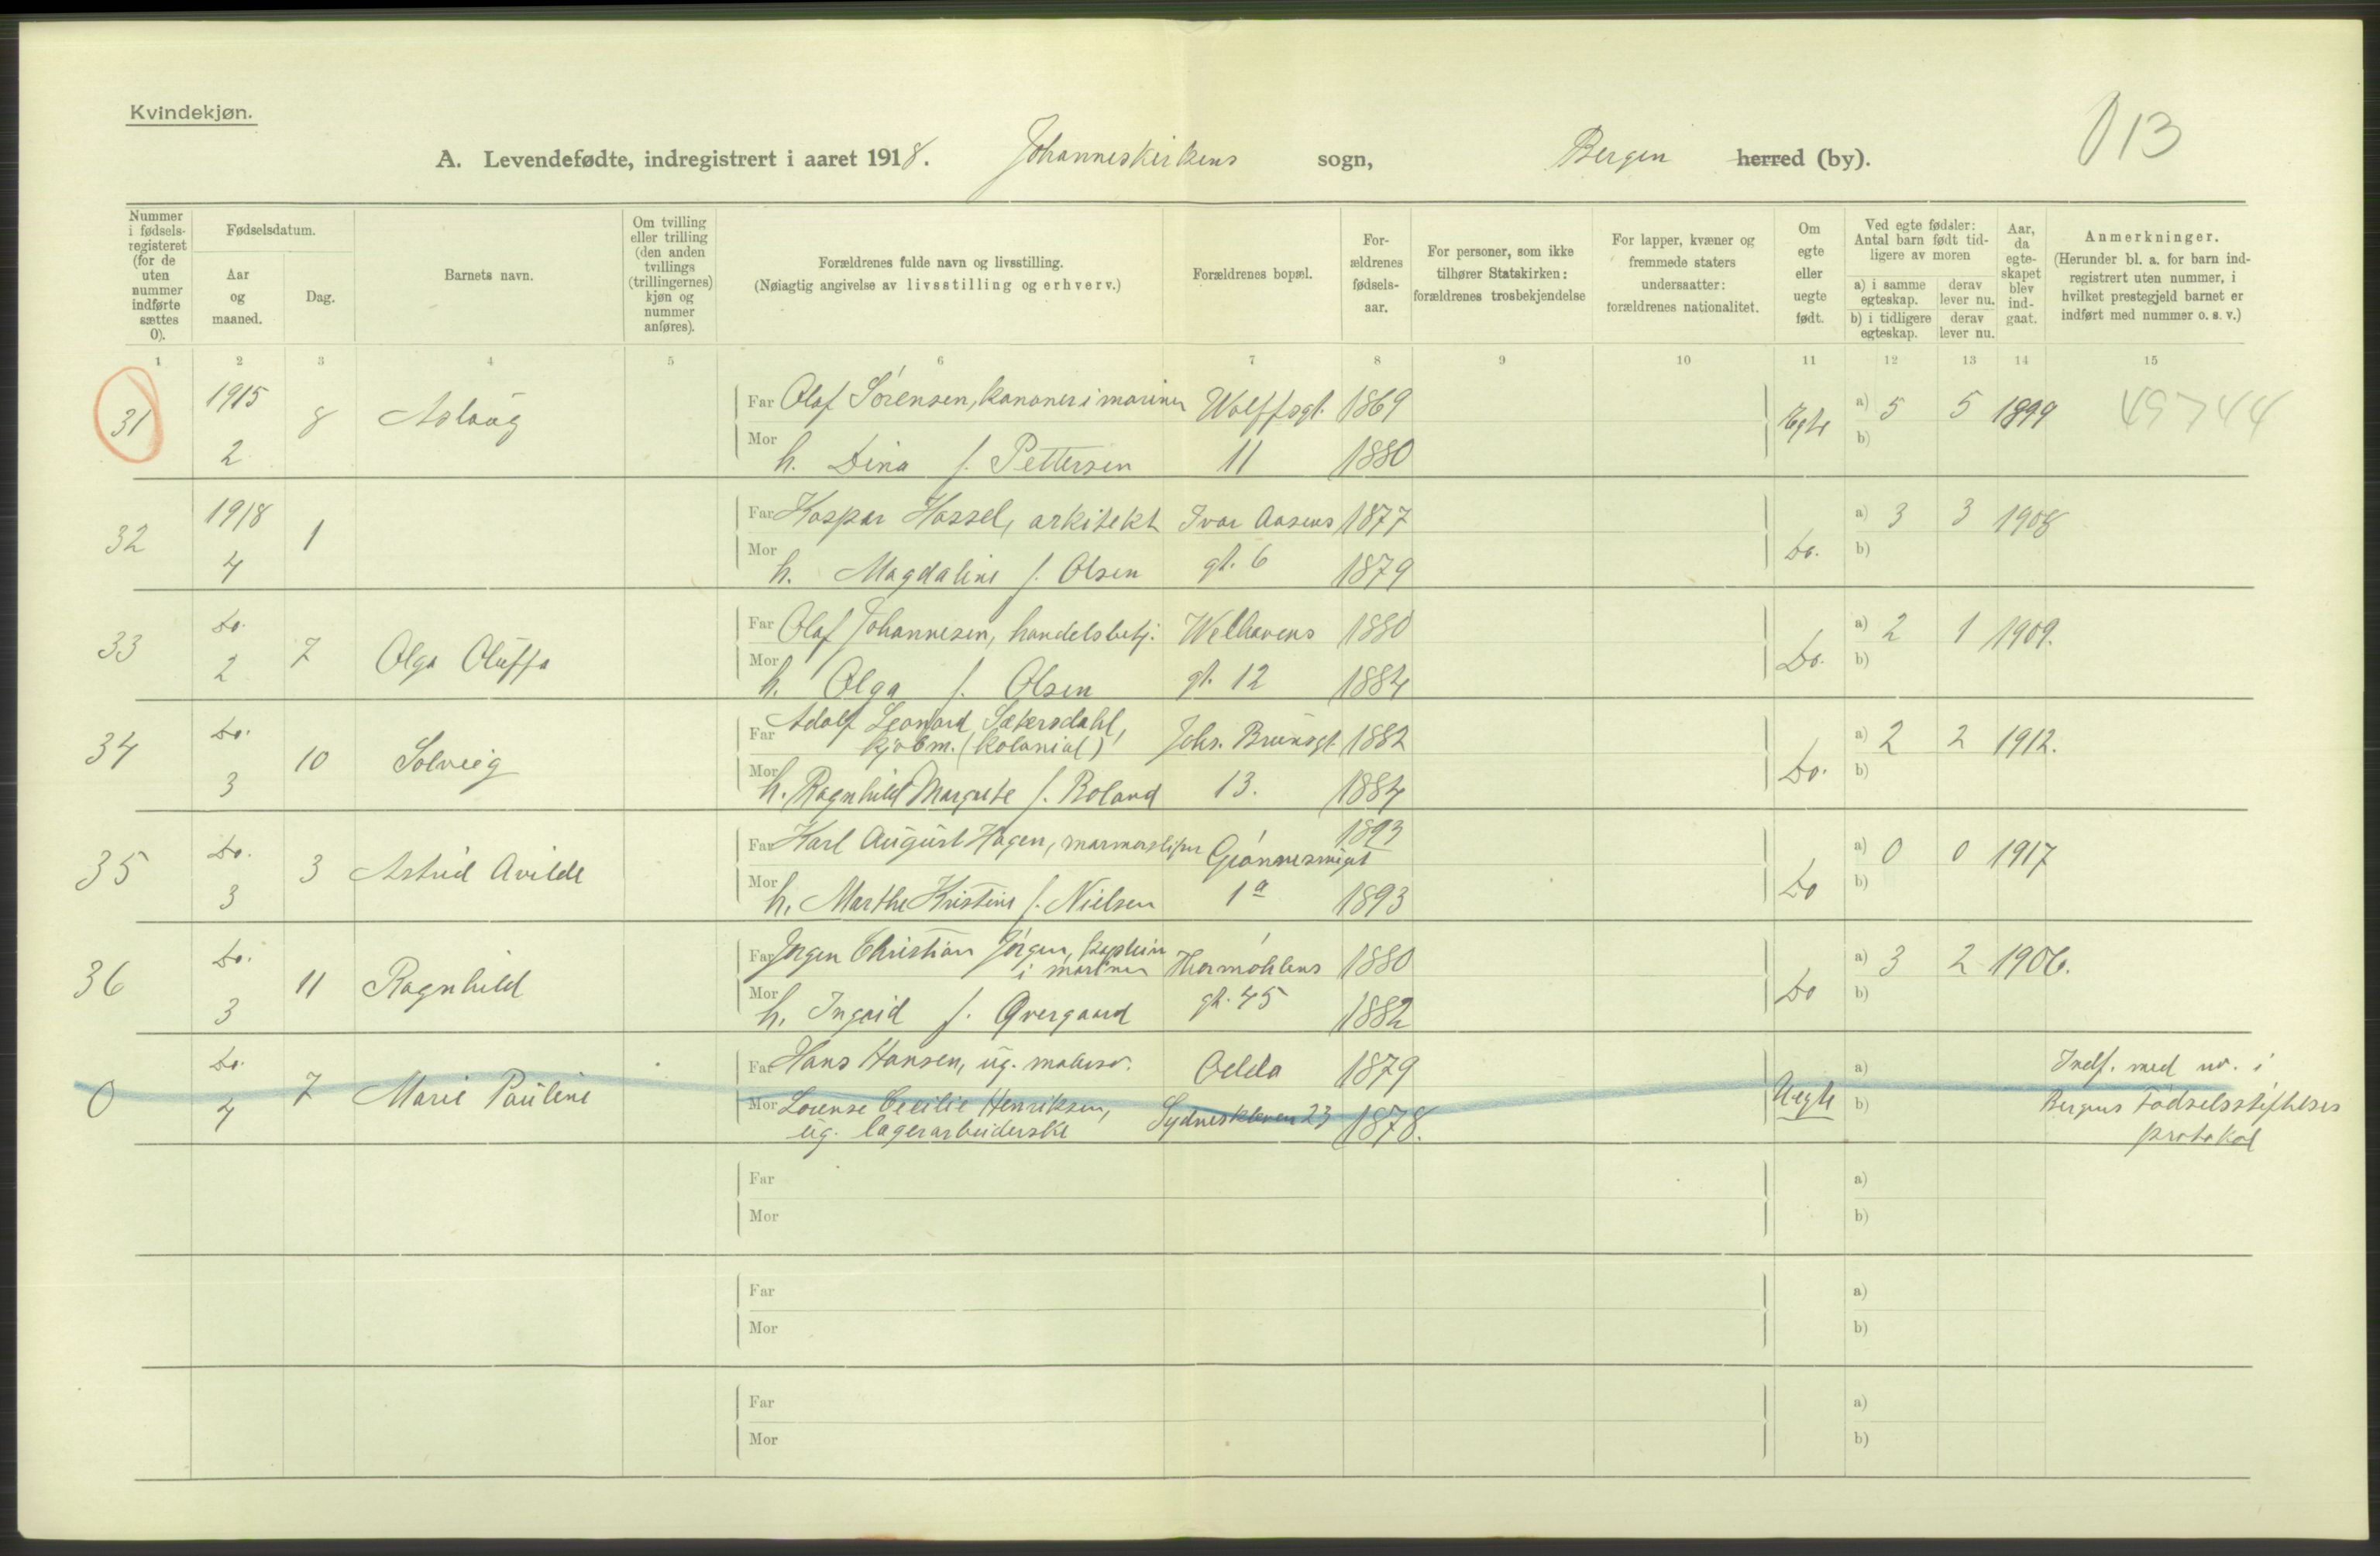 Kvindekjøn.
A. Levendefødte, indregistrert i aaret 1918. Johanneskirkens sogn, Bergen herred (by). 13
Nummer i fødselsregisteret (for de uten nummer indførte sættes 0).
Fødselsdatum.
Aar og maaned.
Dag.
Barnets navn.
Om tvilling eller trilling (den anden tvillings (trillingernes) kjøn og nummer anføres).
Forældrenes fulde navn og livsstilling.
(Nøiagtig angivelse av livsstilling og erhverv.)
Forældrenes bopæl.
Forældrenes fødselsaar.
For personer, som ikke tilhører Statskirken: forældrenes trosbekjendelse
For lapper, kvæner og fremmede staters undersaatter: forældrenes nationalitet.
Om egte eller uegte født.
Ved egte fødsler: Antal barn født tidligere av moren
a) i samme egteskap. derav lever nu.
b) i tidligere egteskap. derav lever nu.
Aar, da egteskapet blev indgaat.
Anmerkninger.
(Herunder bl. a. for barn indregistrert uten nummer, i hvilket prestegjeld barnet er indført med nummer o. s. v.)
1 2 3 4 5 6 7 8 9 10 11 12 13 14 15
31 1915 2 8 Aslaug
Far Olaf Sørensen, kanoner i marinen Wolffsgt. 1869
Mor h. Dina f. Pettersen 11 1880
Egte a) 5 5 1899 49744
b)
32 1918 4 1
Far Kaspar Hassel, arkitekt Ivar Aasens 1877
Mor h. Magdalene f. Olsen gt. 6 1879
Do. a) 3 3 1908
b)
33 Do. 2 7 Olga Oluffa
Far Olaf Johannesen, handelsbetj. Welhavens 1880
Mor h. Olga f. Olsen gt. 12 1884
Do. a) 2 1 1909.
b)
34 Do. 3 10 Solveig
Far Adolf Leonard Sætersdahl,
kjøbm. (kolonial) Johs. Brunsgt. 1882
Mor h. Ragnhild Margrete f. Roland 13. 1884
Do. a) 2 2 1912.
b)
35 Do. 3 3 Astrid Avilde
Far Karl August Hagen, marmorsliper 1893
Mor h. Marthe Kristine f. Nielsen 1a 1893
Do a) 0 0 1917
b)
36 Do. 3 11 Ragnhild
Far Jørgen Christian Jørgen, kaptein
i marinen Hermohlens 1880
Mor h. Ingrid f. Qvergaard gt. 45 1882
Do a) 3 2 1906.
b)
0 Do. 4 7 Marie Pauline
Far Hans Hansen, ug. malersv. Odda 1879
Mor Lorense Cecilie Henriksen,
ug. lagerarbeiderske Sydneskleven 23 1878.
Uegte a)
b)
Indf. med nr. i
Bergens Fødselsstiftelses
protokol
Far a)
Mor b)
Far a)
Mor b)
Far a)
Mor b)